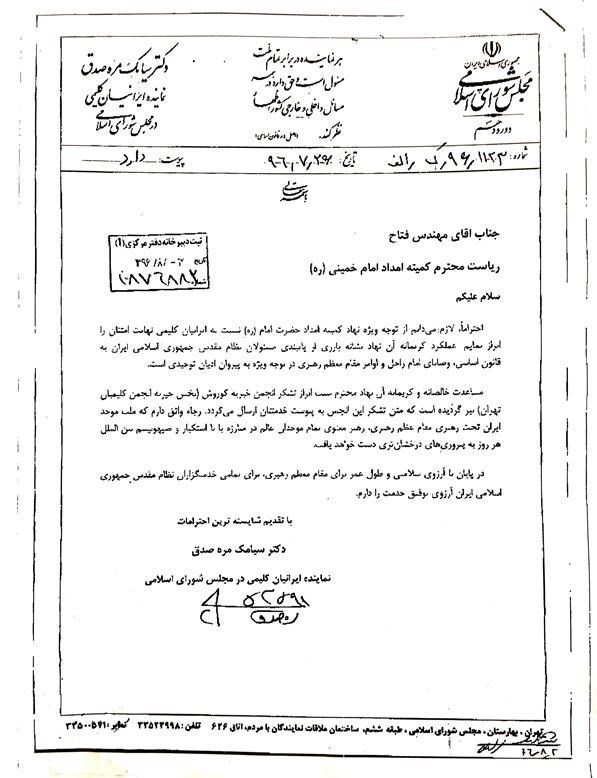 جمهوری اسلامی ایران
مجلس شورای اسلامی
دوره دهم
هر نماینده در برابر تمام ملت
مسئول است و حق دارد در همه
مسائل داخلی و خارجی کشور اظهار
نظر کند.
دکتر سیامک مره صدق
نماینده ایرانیان کلیمی
در مجلس شورای اسلامی
شماره:
تاریخ: ۹۶,۷,۲۶
پیوست: دارد
جناب آقای مهندس فتاح
ثبت دبیرخانه دفتر مرکزی (۱)
ریاست محترم کمیته امداد امام خمینی (ره)
تاریخ
شماره
سلام علیکم
احتراماً، لازم می‌دانم از توجه ویژه نهاد کمیته امداد حضرت امام (ره) نسبت به ایرانیان کلیمی نهایت امتنان را
ابراز نمایم. عملکرد کریمانه آن نهاد نشانه بارزی از پایبندی مسئولان نظام مقدس جمهوری اسلامی ایران به
قانون اساسی، وصایای امام راحل و اوامر مقام معظم رهبری در توجه ویژه به پیروان ادیان توحیدی است.
مساعدت خالصانه و کریمانه آن نهاد محترم سبب ابراز تشکر انجمن خیریه کوروش (بخش خیریه انجمن کلیمیان
تهران) نیز گردیده است که متن تشکر این انجمن به پیوست خدمتتان ارسال می‌گردد. رجاء واثق دارم که ملت موحد
ایران تحت رهبری مقام عظم رهبری، رهبر معنوی تمام موحدان عالم در مبارزه با با استکبار و صهیونیسم بین الملل
هر روز به پیروزی‌های درخشان‌تری دست خواهد یافت.
در پایان با آرزوی سلامتی و طول عمر برای مقام معظم رهبری، برای تمامی خدمتگزاران نظام مقدس جمهوری
اسلامی ایران آرزوی توفیق خدمت را دارم.
با تقدیم شایسته ترین احترامات
دکتر سیامک مره صدق
نماینده ایرانیان کلیمی در مجلس شورای اسلامی
تهران، بهارستان، مجلس شورای اسلامی، طبقه ششم، ساختمان ملاقات نمایندگان با مردم، اتاق ۶۲۶ تلفن: ۳۳۵۲۳۹۹۸ نمابر: ۳۳۵۰۰۵۴۱